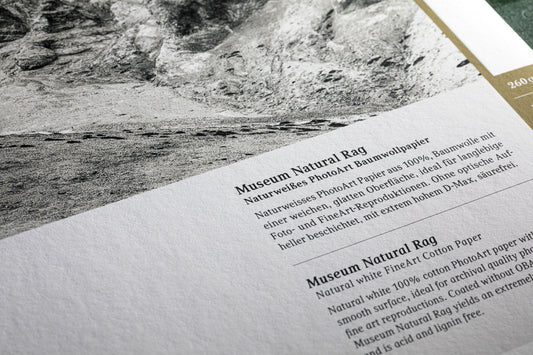 Museum Natural Rag
Naturweißes PhotoArt Baumwollpapier
Naturweisses PhotoArt Papier aus 100%, Baumwolle mit
einer weichen, glatten Oberfläche, ideal für langlebige
Foto- und FineArt-Reproduktionen. Ohne optische Auf-
heller beschichtet, mit extrem hohem D-Max, säurefrei.
Museum Natural Rag
Natural white FineArt Cotton Paper
Natural white 100% cotton PhotoArt paper with
smooth surface, ideal for archival quality pho
fine art reproductions. Coated without OBA
Museum Natural Rag yields an extremel
nd is acid and lignin free.
260